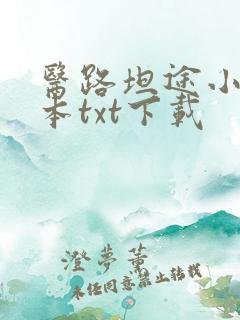 醫路坦途小
本txt下載
澄夢薰
未经同意禁止转载